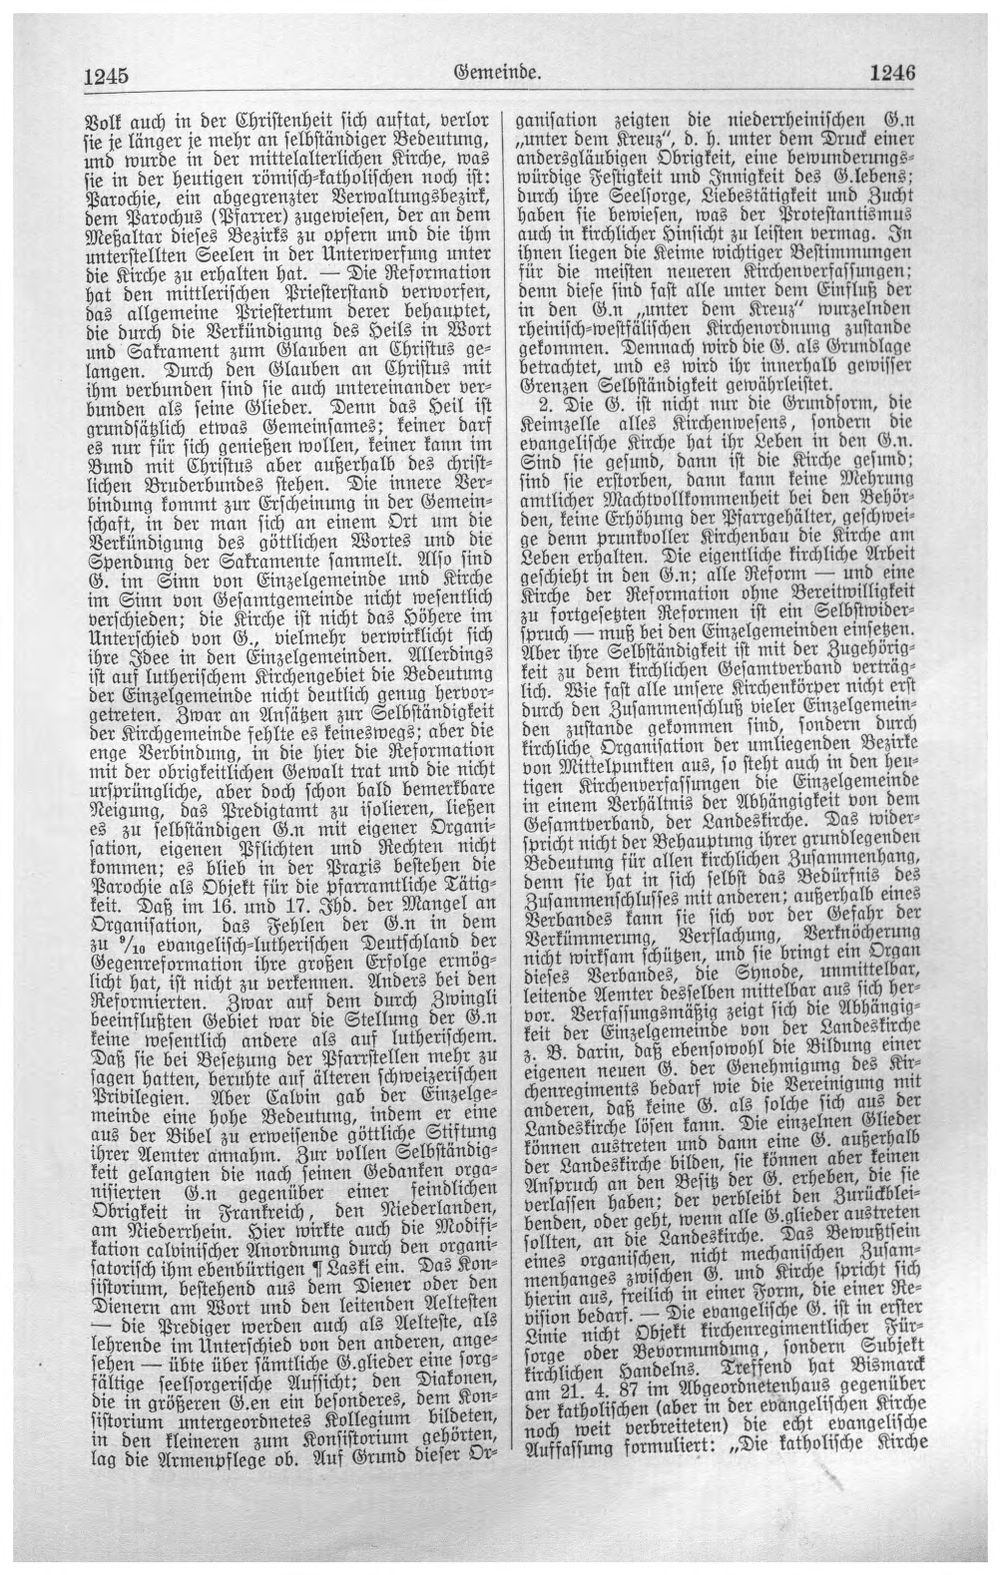 1245
Gemeinde.
1246
Volk auch in der Christenheit sich auftat, verlor
sie je länger je mehr an selbständiger Bedeutung,
und wurde in der mittelalterlichen Kirche, was
sie in der heutigen römisch-katholischen noch ist:
Parochie, ein abgegrenzter Verwaltungsbezirk,
dem Parochus (Pfarrer) zugewiesen, der an dem
Meßaltar dieses Bezirks zu opfern und die ihm
unterstellten Seelen in der Unterwerfung unter
die Kirche zu erhalten hat. — Die Reformation
hat den mittlerischen Priesterstand verworfen,
das allgemeine Priestertum derer behauptet,
die durch die Verkündigung des Heils in Wort
und Sakrament zum Glauben an Christus ge-
langen. Durch den Glauben an Christus mit
ihm verbunden sind sie auch untereinander ver-
bunden als seine Glieder. Denn das Heil ist
grundsätzlich etwas Gemeinsames; keiner darf
es nur für sich genießen wollen, keiner kann im
Bund mit Christus aber außerhalb des christ-
lichen Bruderbundes stehen. Die innere Ver-
bindung kommt zur Erscheinung in der Gemein-
schaft, in der man sich an einem Ort um die
Verkündigung des göttlichen Wortes und die
Spendung der Sakramente sammelt. Also sind
G. im Sinn von Einzelgemeinde und Kirche
im Sinn von Gesamtgemeinde nicht wesentlich
verschieden; die Kirche ist nicht das Höhere im
Unterschied von G., vielmehr verwirklicht sich
ihre Idee in den Einzelgemeinden. Allerdings
ist auf lutherischem Kirchengebiet die Bedeutung
der Einzelgemeinde nicht deutlich genug hervor-
getreten. Zwar an Ansätzen zur Selbständigkeit
der Kirchgemeinde fehlte es keineswegs; aber die
enge Verbindung, in die hier die Reformation
mit der obrigkeitlichen Gewalt trat und die nicht
ursprüngliche, aber doch schon bald bemerkbare
Neigung, das Predigtamt zu isolieren, ließen
es zu selbständigen G.n mit eigener Organi-
sation, eigenen Pflichten und Rechten nicht
kommen; es blieb in der Praxis bestehen die
Parochie als Objekt für die pfarramtliche Tätig-
keit. Daß im 16. und 17. Jhd. der Mangel an
Organisation, das Fehlen der G.n in dem
zu 9/10 evangelisch-lutherischen Deutschland der
Gegenreformation ihre großen Erfolge ermög-
licht hat, ist nicht zu verkennen. Anders bei den
Reformierten. Zwar auf dem durch Zwingli
beeinflußten Gebiet war die Stellung der G.n
keine wesentlich andere als auf lutherischem.
Daß sie bei Besetzung der Pfarrstellen mehr zu
sagen hatten, beruhte auf älteren schweizerischen
Privilegien. Aber Calvin gab der Einzelge-
meinde eine hohe Bedeutung, indem er eine
aus der Bibel zu erweisende göttliche Stiftung
ihrer Aemter annahm. Zur vollen Selbständig-
keit gelangten die nach seinen Gedanken orga-
nisierten G.n gegenüber einer feindlichen
Obrigkeit in Frankreich, den Niederlanden,
am Niederrhein. Hier wirkte auch die Modifi-
kation calvinischer Anordnung durch den organi-
satorisch ihm ebenbürtigen ¶ Laski ein. Das Kon-
sistorium, bestehend aus dem Diener oder den
Dienern am Wort und den leitenden Aeltesten
— die Prediger werden auch als Aelteste, als
lehrende im Unterschied von den anderen, ange-
sehen — übte über sämtliche G.glieder eine sorg-
fältige seelsorgerische Aufsicht; den Diakonen,
die in größeren G.en ein besonderes, dem Kon-
sistorium untergeordnetes Kollegium bildeten,
in den kleineren zum Konsistorium gehörten,
lag die Armenpflege ob. Auf Grund dieser Or-
ganisation zeigten die niederrheinischen G.n
„unter dem Kreuz“, d. h. unter dem Druck einer
andersgläubigen Obrigkeit, eine bewunderungs-
würdige Festigkeit und Innigkeit des G.lebens;
durch ihre Seelsorge, Liebestätigkeit und Zucht
haben sie bewiesen, was der Protestantismus
auch in kirchlicher Hinsicht zu leisten vermag. In
ihnen liegen die Keime wichtiger Bestimmungen
für die meisten neueren Kirchenverfassungen;
denn diese sind fast alle unter dem Einfluß der
in den G.n „unter dem Kreuz“ wurzelnden
rheinisch-westfälischen Kirchenordnung zustande
gekommen. Demnach wird die G. als Grundlage
betrachtet, und es wird ihr innerhalb gewisser
Grenzen Selbständigkeit gewährleistet.
2. Die G. ist nicht nur die Grundform, die
Keimzelle alles Kirchenwesens, sondern die
evangelische Kirche hat ihr Leben in den G.n.
Sind sie gesund, dann ist die Kirche gesund;
sind sie erstorben, dann kann keine Mehrung
amtlicher Machtvollkommenheit bei den Behör-
den, keine Erhöhung der Pfarrgehälter, geschwei-
ge denn prunkvoller Kirchenbau die Kirche am
Leben erhalten. Die eigentliche kirchliche Arbeit
geschieht in den G.n; alle Reform — und eine
Kirche der Reformation ohne Bereitwilligkeit
zu fortgesetzten Reformen ist ein Selbstwider-
spruch — muß bei den Einzelgemeinden einsetzen.
Aber ihre Selbständigkeit ist mit der Zugehörig-
keit zu dem kirchlichen Gesamtverband verträg-
lich. Wie fast alle unsere Kirchenkörper nicht erst
durch den Zusammenschluß vieler Einzelgemein-
den zustande gekommen sind, sondern durch
kirchliche Organisation der umliegenden Bezirke
von Mittelpunkten aus, so steht auch in den heu-
tigen Kirchenverfassungen die Einzelgemeinde
in einem Verhältnis der Abhängigkeit von dem
Gesamtverband, der Landeskirche. Das wider-
spricht nicht der Behauptung ihrer grundlegenden
Bedeutung für allen kirchlichen Zusammenhang,
denn sie hat in sich selbst das Bedürfnis des
Zusammenschlusses mit anderen; außerhalb eines
Verbandes kann sie sich vor der Gefahr der
Verkümmerung, Verflachung, Verknöcherung
nicht wirksam schützen, und sie bringt ein Organ
dieses Verbandes, die Synode, unmittelbar,
leitende Aemter desselben mittelbar aus sich her-
vor. Verfassungsmäßig zeigt sich die Abhängig-
keit der Einzelgemeinde von der Landeskirche
z. B. darin, daß ebensowohl die Bildung einer
eigenen neuen G. der Genehmigung des Kir-
chenregiments bedarf wie die Vereinigung mit
anderen, daß keine G. als solche sich aus der
Landeskirche lösen kann. Die einzelnen Glieder
können austreten und dann eine G. außerhalb
der Landeskirche bilden, sie können aber keinen
Anspruch an den Besitz der G. erheben, die sie
verlassen haben; der verbleibt den Zurückblei-
benden, oder geht, wenn alle G.glieder austreten
sollten, an die Landeskirche. Das Bewußtsein
eines organischen, nicht mechanischen Zusam-
menhanges zwischen G. und Kirche spricht sich
hierin aus, freilich in einer Form, die einer Re-
vision bedarf. — Die evangelische G. ist in erster
Linie nicht Objekt kirchenregimentlicher Für-
sorge oder Bevormundung, sondern Subjekt
kirchlichen Handelns. Treffend hat Bismarck
am 21. 4. 87 im Abgeordnetenhaus gegenüber
der katholischen (aber in der evangelischen Kirche
noch weit verbreiteten) die echt evangelische
Auffassung formuliert: „Die katholische Kirche